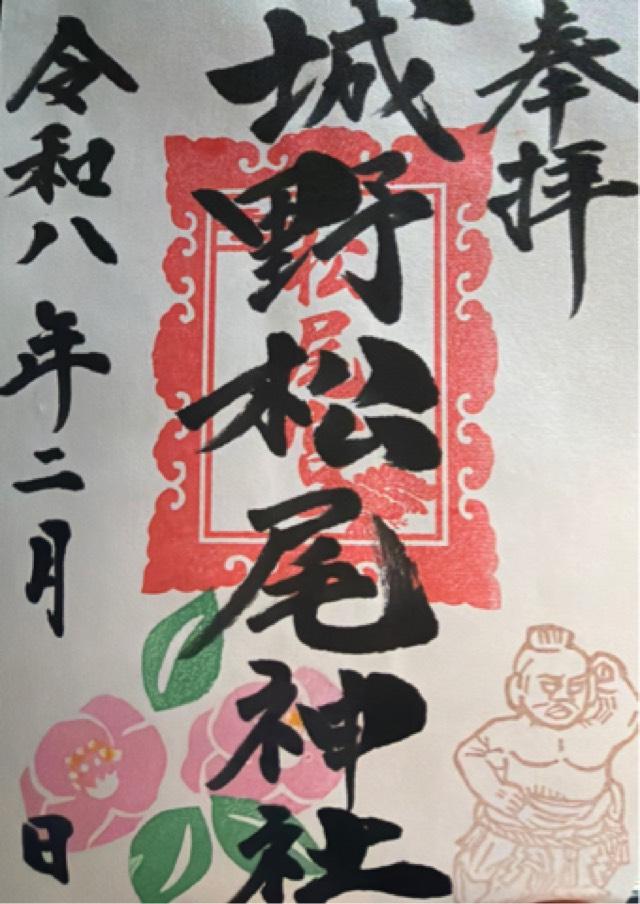 奉拝
城野松尾神社
令和八年二月 日